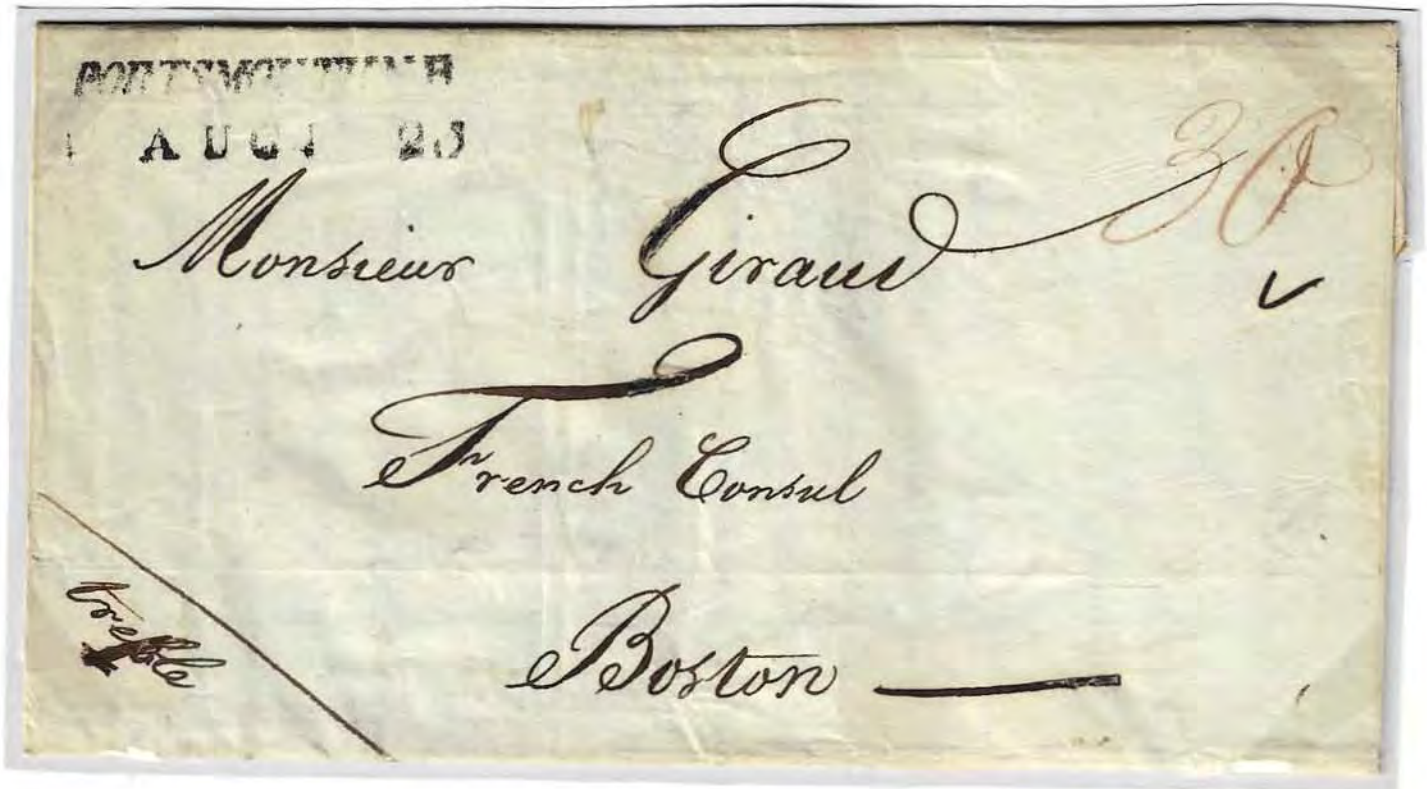 PORTSMOUTH N H
AUGT 25
30
Monsieur Giraud
French Consul
Boston
treble